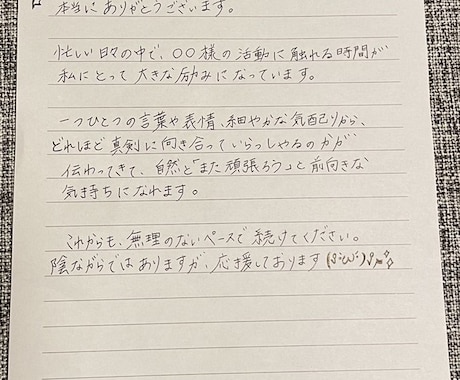 本当にありがとうございます。
忙しい日々の中で、〇〇様の活動に触れる時間が
私にとって大きな励みになっています。
一つひとつの言葉や表情、細やかな気配りから、
どれほど真剣に向き合っていらっしゃるのかが
伝わってきて、自然と「また頑張ろう」と前向きな
気持ちになれます。
これからも、無理のないペースで続けてください。
陰ながらではありますが、応援しております